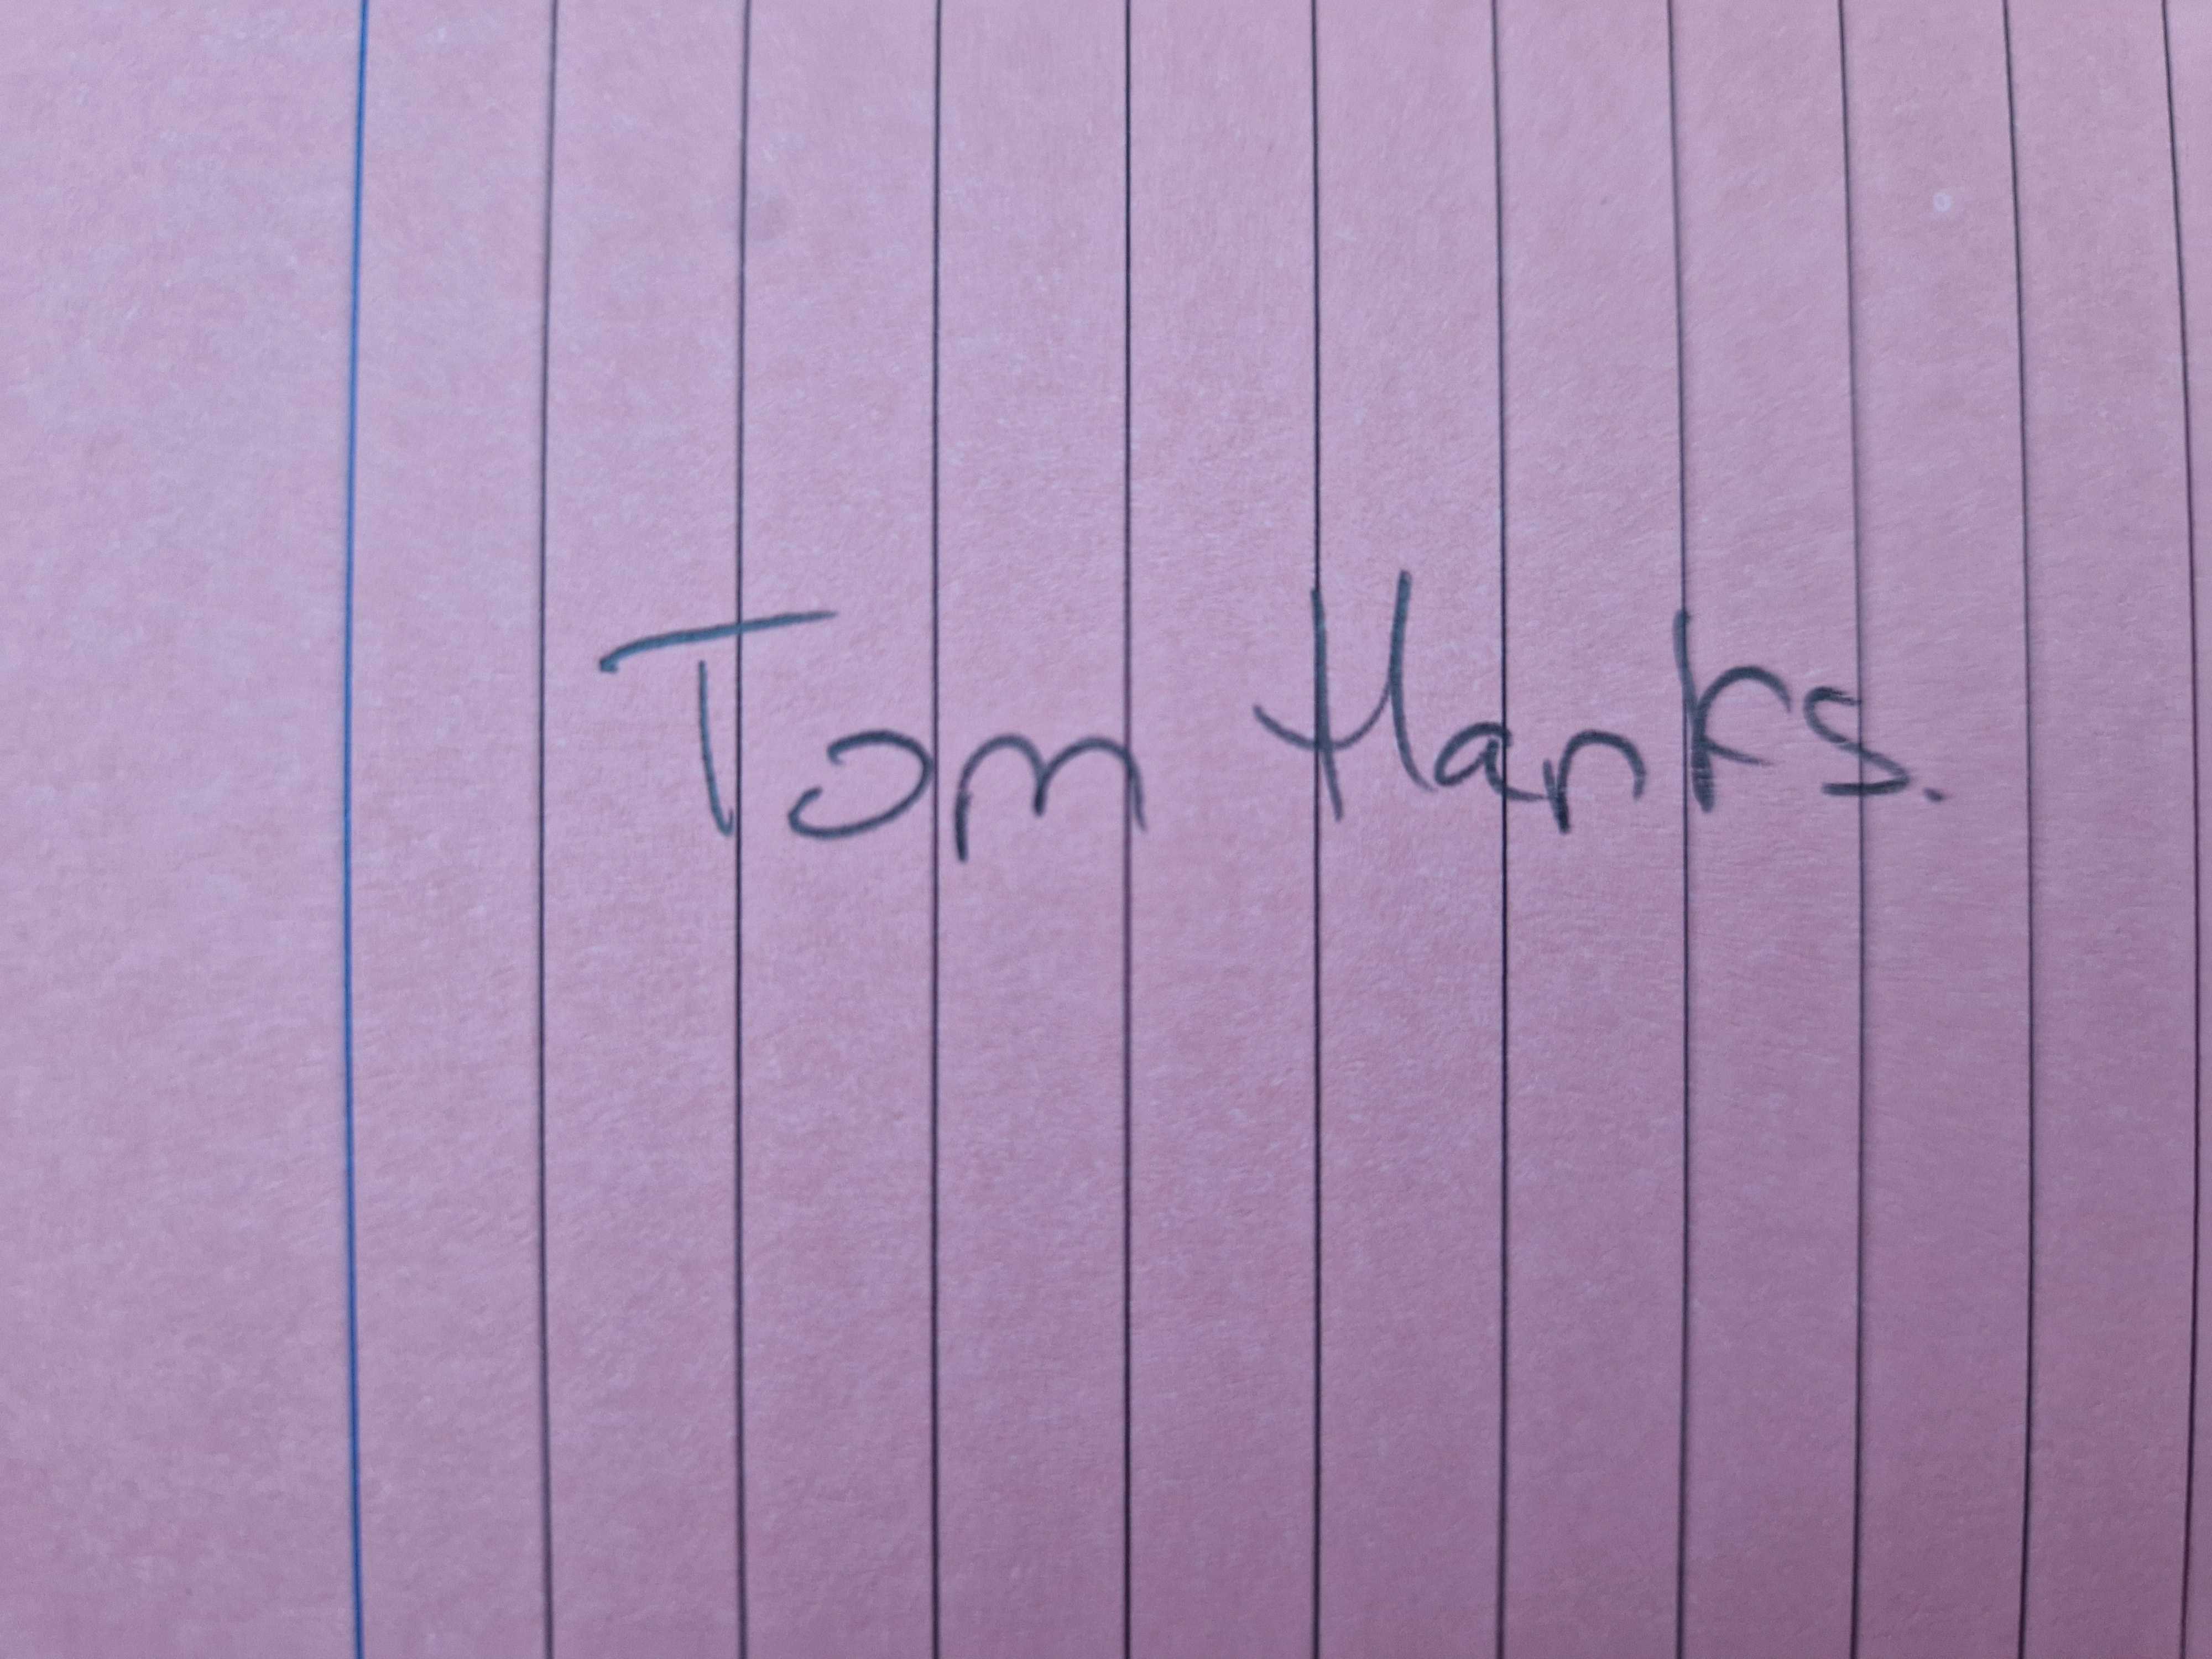 Tom Hanks.